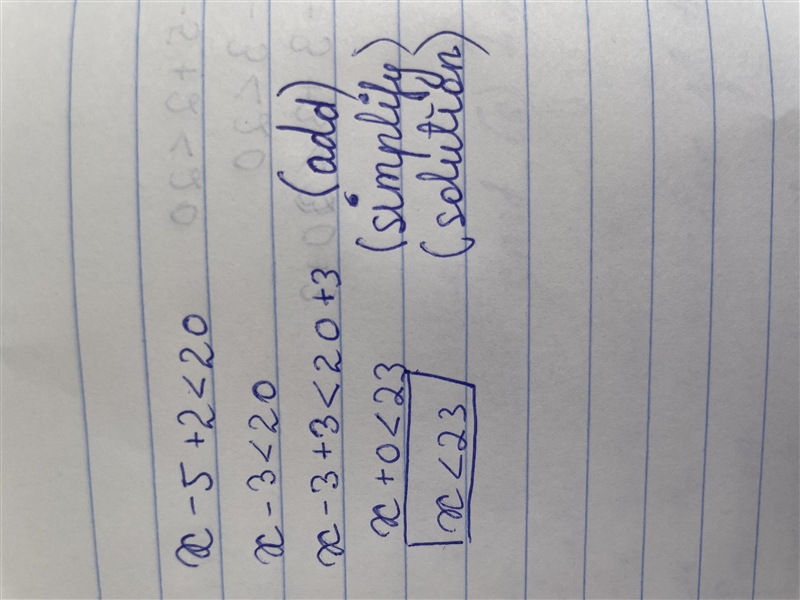 x - 5 + 2 < 20
x - 3 < 20
x - 3 + 3 < 20 + 3 (add)
x + 0 < 23 (simplify)
x < 23 (solution)